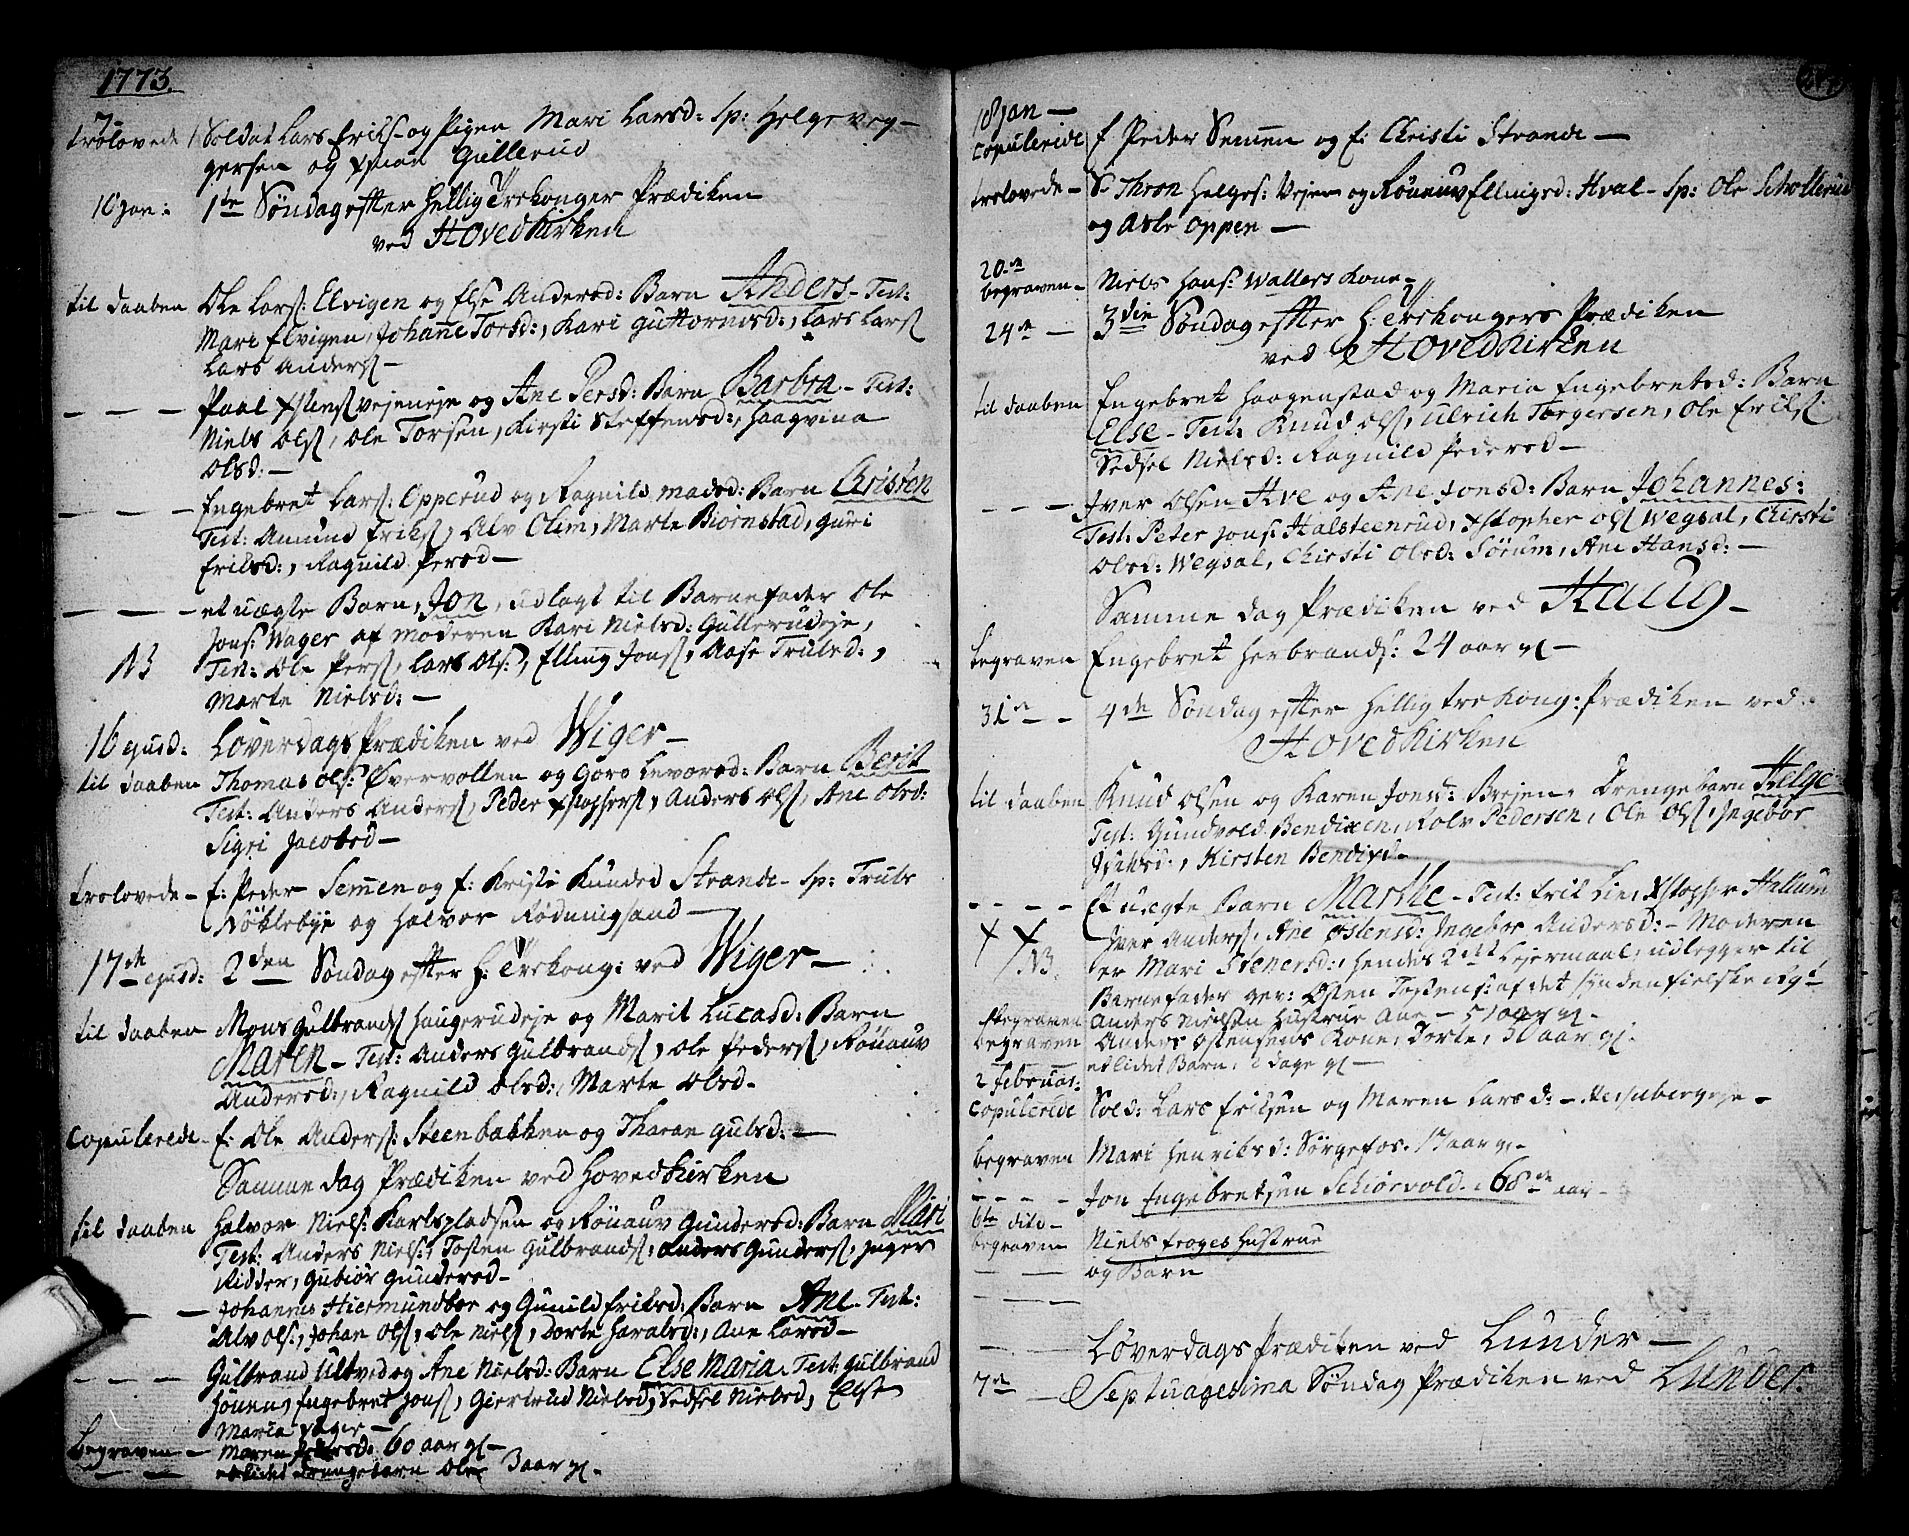 1773.
trolovede Soldat Lars Eriks. og Pigen Mari Larsd: Sp: Helgeveg-
gersen og Gullerud
10 Jan: 1ste Søndag efter Hellig Trekonger Prædiken
ved HovedKirken
til daaben Ole Lars: Elvigen og Else Andersd: Barn Anders - Test:
Mari Elvigen, Johanne Torsd:, Kari Guttormsd:, Lars Lars
Lars Anders -
- - - Paal Vejeneje og Ane Persd: Barn Barbra - Test:
Niels Ols, Ole Torsen, Kirsti Steffensd:, Haagvina
Olsd: -
- - - Engebret Lars: Opperud og Ragnild Madsd: Barn Christen
Test: Amund Eriks, Alv Olim, Marte Biørnstad, Guri
Eriksd:, Ragnild Persd -
- - - et uægte Barn, Jon, udlagt til Barnefader Ole
Jons: Wager af moderen Kari Nielsd: Gullerudeje,
NB Test: Ole Pers, Lars Ols:, Elling Jons, Aase Trulsd:,
Marte Nielsd: -
16 ejusd: Løverdags Prædiken ved Wiger -
til daaben Thomas Ols: Øvervollen og Goro Levorsd: Barn Berit
Test: Anders Anders, Peder Xstophers, Anders Ols, Ane Olsd:
Sigri Jacobsd -
trolovede - E: Peder Semmen og E: Kristi Strande - Sp: Truls
Nøklebye og Halvor Rødningsand -
17de ejusd: 2den Søndag efter H: Trekong: ved Wiger -
til daaben Mons Gulbrands Haugerudeje og Marit Lucasd: Barn
Maren - Test: Anders Gulbrands, Ole Peders, Rønauv
Andersd:, Ragnild Olsd:, Marte Olsd.
Copulerede - E: Ole Anders: Steenbakken og Tharan Gulsd: -
Samme dag Prædiken ved HovedKirken
til daaben Halvor Niels: Karlspladsen og Rønauv Gundersd: Barn Mari
Test: Anders Niels:, Tosten Gulbrands, Anders Gunders, Inger
Ridder, Gubiør Gundersd -
- - Johannes Hiermundboe og Gunild Eriksd: Barn Ane - Test:
Alv Ols:, Johan Ols, Ole Niels, Dorte Haralsd:, Ane Larsd -
- - - Gulbrand Ultved og Ane Nielsd: Barn Else Maria - Test: Gulbrand
Hønen, Engebret Jons, Giertrud Nielsd, Sedsel Nielsd, Else
Maria Vager -
Begraven - Maren 60 aar gl -
- - et lidet drengebarn Ole 3 aar gl -
18 Jan -
Copulerede E Peder Semmen og E: Christi Strande -
trolovede - S: Thron Helges: Vejen og Rønnuv Ellingsd: Hval - Sp: Ole Schollerud
og Asle Oppen -
20de
begraven - Niels Hans: Wallers Kone -
24de - 3die Søndag efter H: Trekongers Prædiken
ved HovedKirken
til daaben Engebret Haagenstad og Maria Engebretsd: Barn
Else - Test: Knud Ols, Ulrich Torgersen, Ole Eriks
Sedsel Nielsd: Ragnild Pedersd -
- - - Iver Olsen Ave og Ane Jonsd: Barn Johannes:
Test: Peter Jons: Halsteenrud, Xstopher Ols Wegsal, Chirsti
Olsd: Wegsal, Chirsti Olsd: Sørum, Ane Hansd: -
Samme dag Prædiken ved Haug -
begraven Engebret Herbrands: 24 aar gl -
31te - - 4de Søndag efter Hellig treKong: Prædiken ved
HovedKirken
til daaben Knud Olsen og Karen Jonsd: Drengebarn Helge
Test: Gundvold Bendixen, Rolv Pedersen, Ole Ols, Ingebor
Kirsten Bendixd -
- - - - Et uægte Barn Marthe - Test: Erik Lie, Xstopher Hallum
Iver Anders, Ane Østensd: Ingebor Andersd: - Moderen
NB. er Mari Stenersd:, hendes 2det Lejermaal, udlegger til
Barnefader gev: Østen Tostens: af det Syndenfielske Rgt
begraven Anders Nielsen Hustrue Ane - 51 aar gl -
begraven Anders Østensens Kone, Dorte, 30 aar gl.
et lidet Barn, 2 dage gl -
2 Februar:
Copulerede Sold: Lars Eriksen og Maren Larsd: -
begraven Mari Henriksd: Sørgefos. 17 aar gl -
- - - - Jon Engebretsen Schiørvold, 68 aar -
6te dito -
begraven Niels Froges Hustrue
- - og Barn
- - Løverdags Prædiken ved Lunder -
7de - Septuagesima Søndag Prædiken ved Lunder.